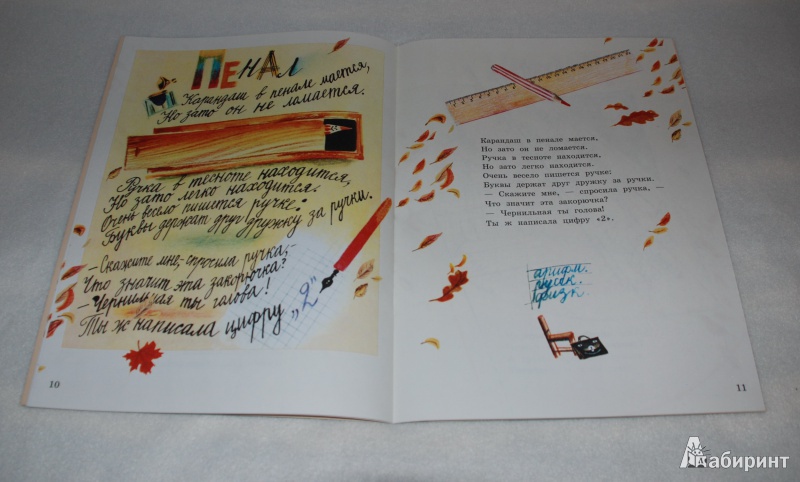 Пенал
Карандаш в пенале мается,
Но зато он не ломается.
Ручка в тесноте находится,
Но зато легко находится.
Очень весело пишется ручке:
Буквы держат друг дружку за ручки.
— Скажите мне, — спросила ручка, —
Что значит эта закорючка?
— Чернильная ты голова!
Ты ж написала цифру „2”
10
Карандаш в пенале мается,
Но зато он не ломается.
Ручка в тесноте находится,
Но зато легко находится.
Очень весело пишется ручке:
Буквы держат друг дружку за ручки.
— Скажите мне, — спросила ручка, —
Что значит эта закорючка?
— Чернильная ты голова!
Ты ж написала цифру «2».
арифм.
физк.
11
Лабиринт